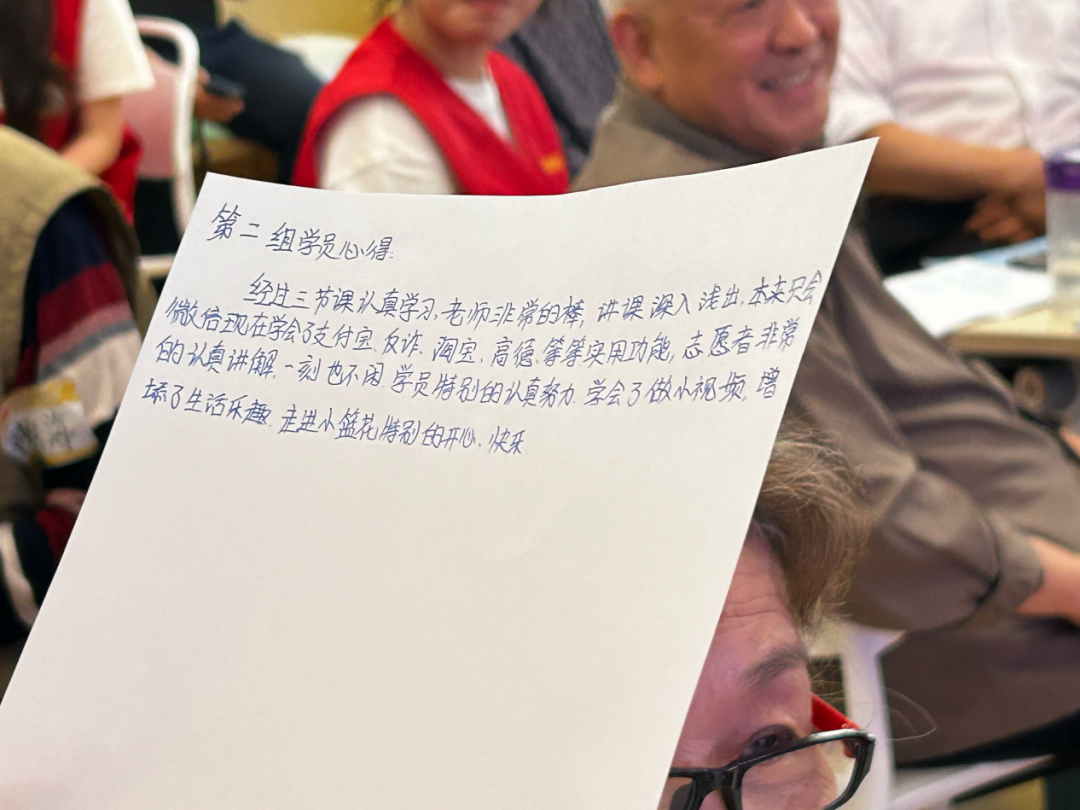 第二组学员心得:
经过三节课认真学习,老师非常的棒,讲课深入浅出,本来只会
微信现在学会了支付宝、反诈、淘宝、高德、等等实用功能,志愿者非常
的认真讲解,一刻也不闲.学员特别的认真努力.学会了做小视频,增
添了生活乐趣.走进小篮花特别的开心、快乐.